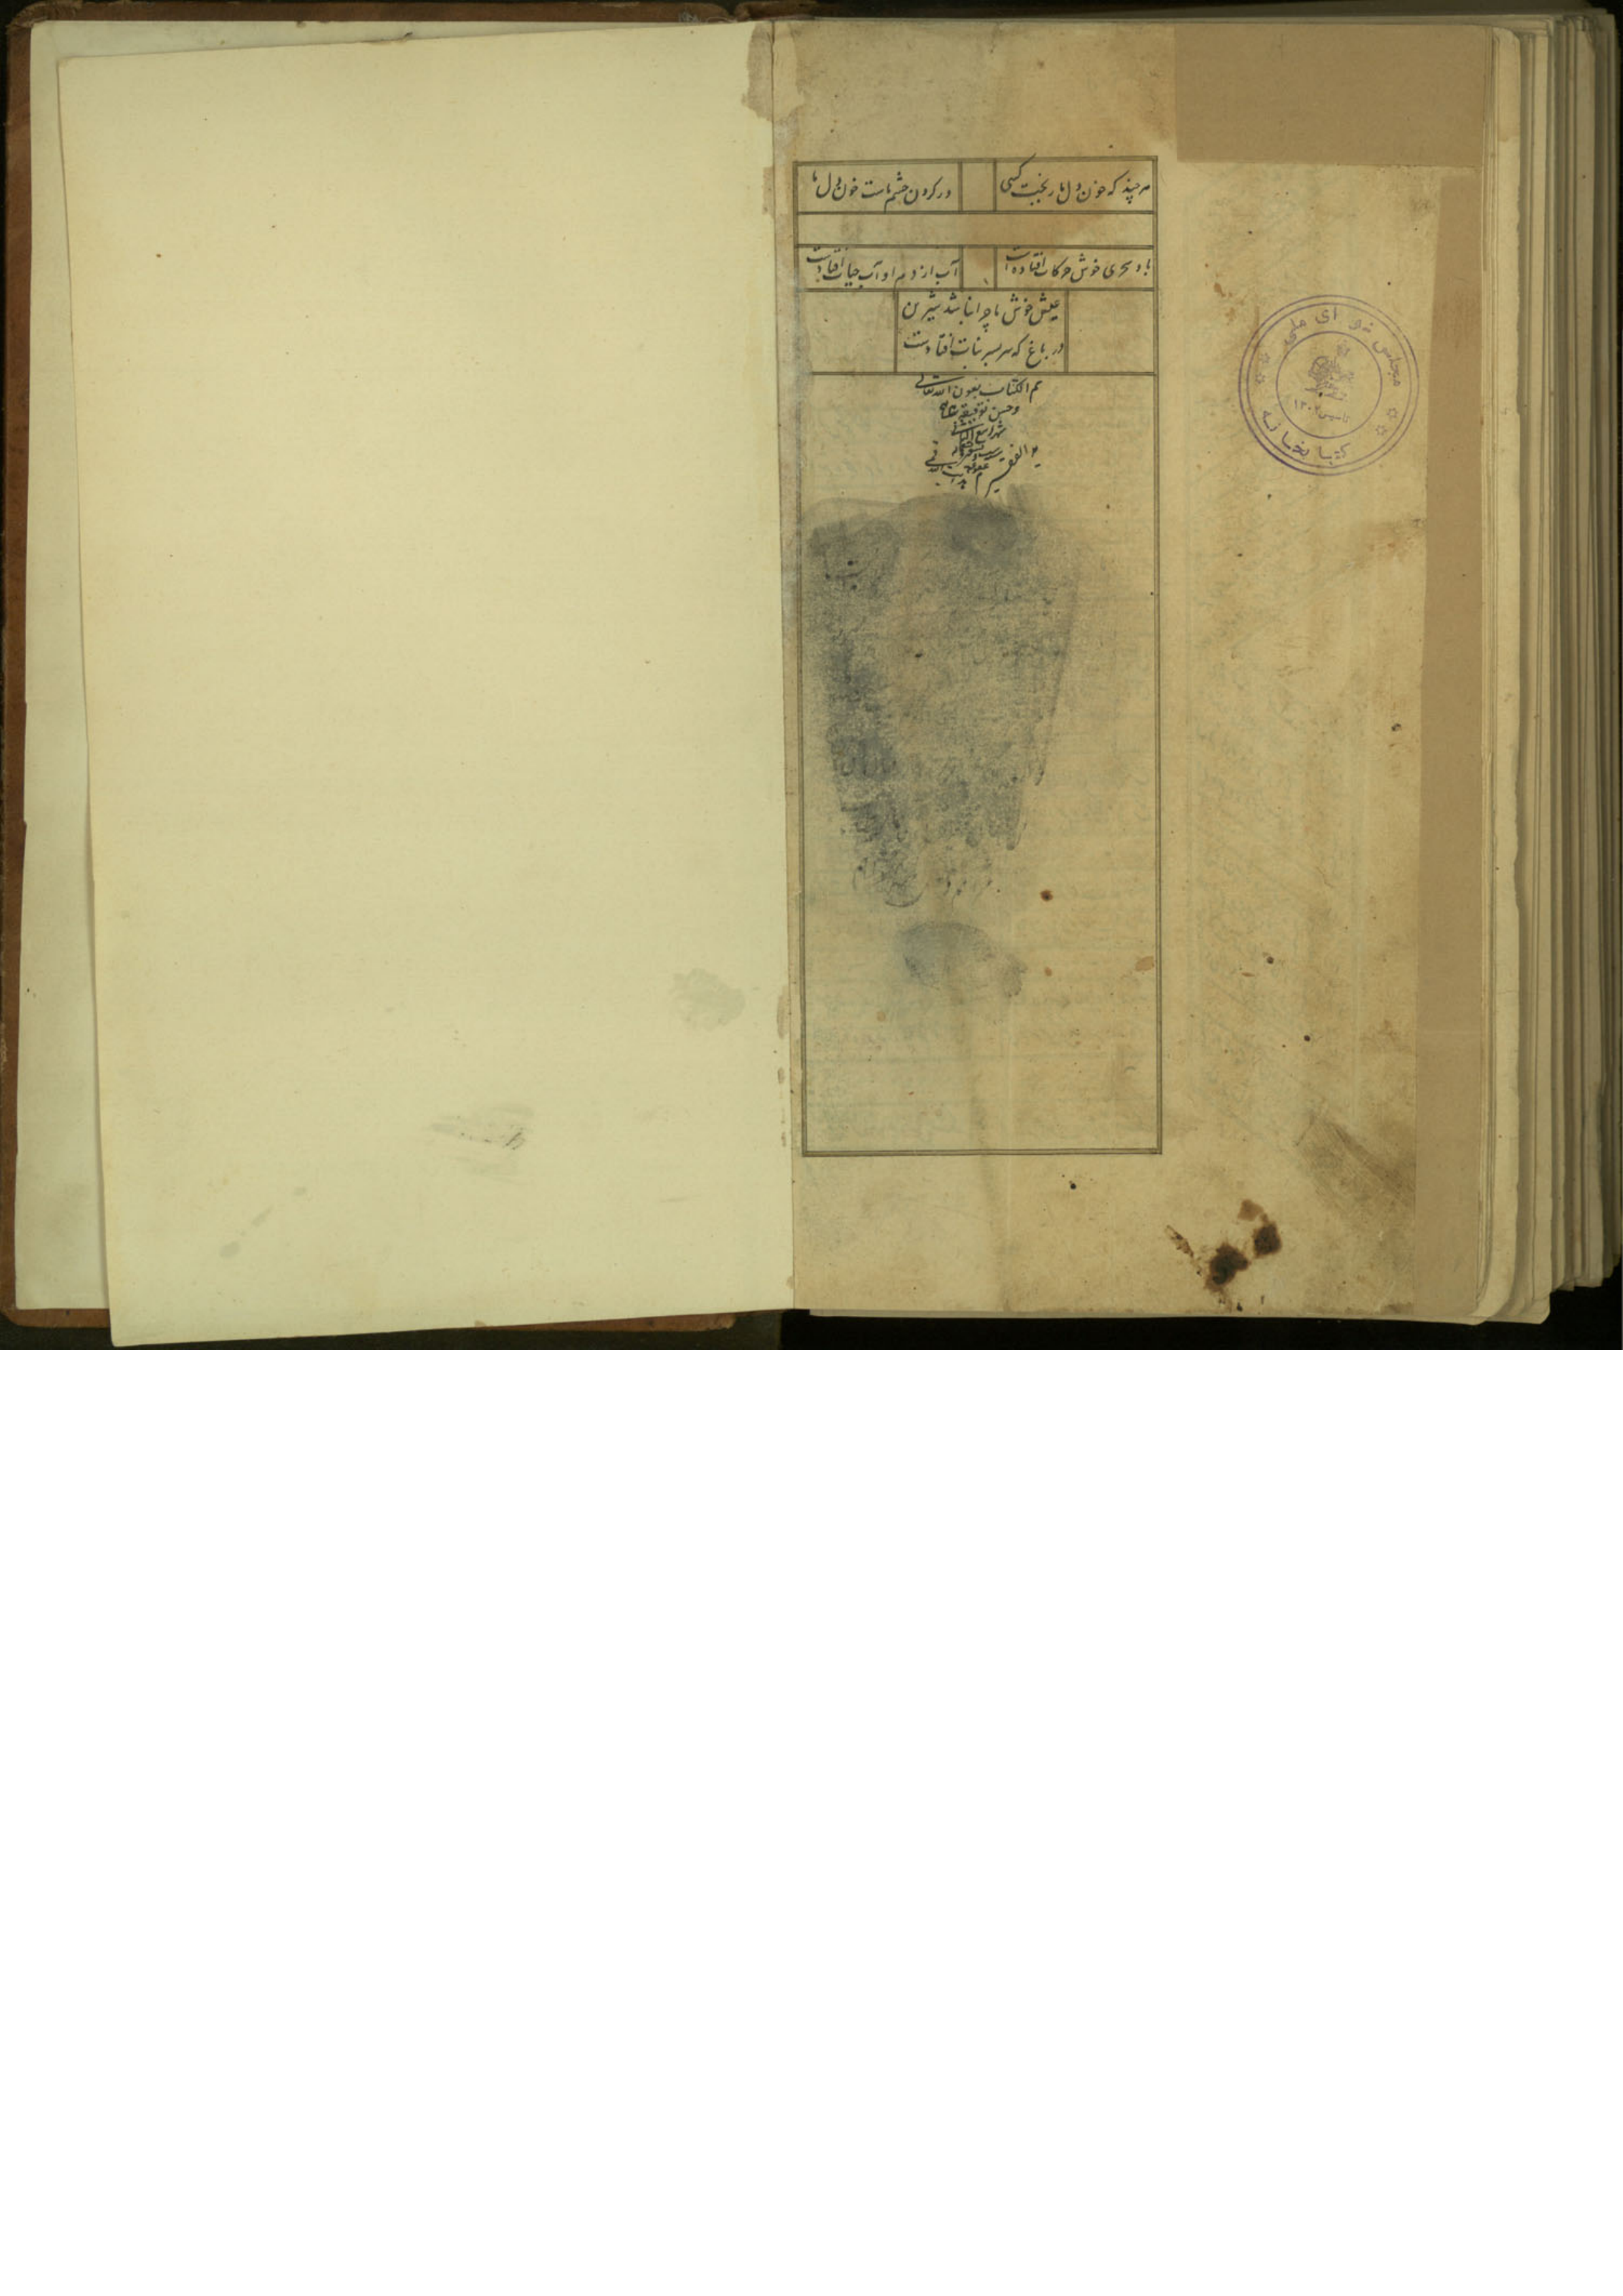 هر چند که خون دل ما ریخت کسی
در کردن چشم ماست خون دل ما
باد سحری خوش حرکات افتاده است
آب از دم او آب حیات افتادست
عیش خوش ما چرا نباشد شیرین
در باغ که سر بسر نبات افتادست
تم الکتاب بعون الله تعالی
و حسن توفیقه
شهر ربیع الثانی
الفقیر
مجلس شورای ملی
تاسیس ۱۳۰۲
کتابخانه